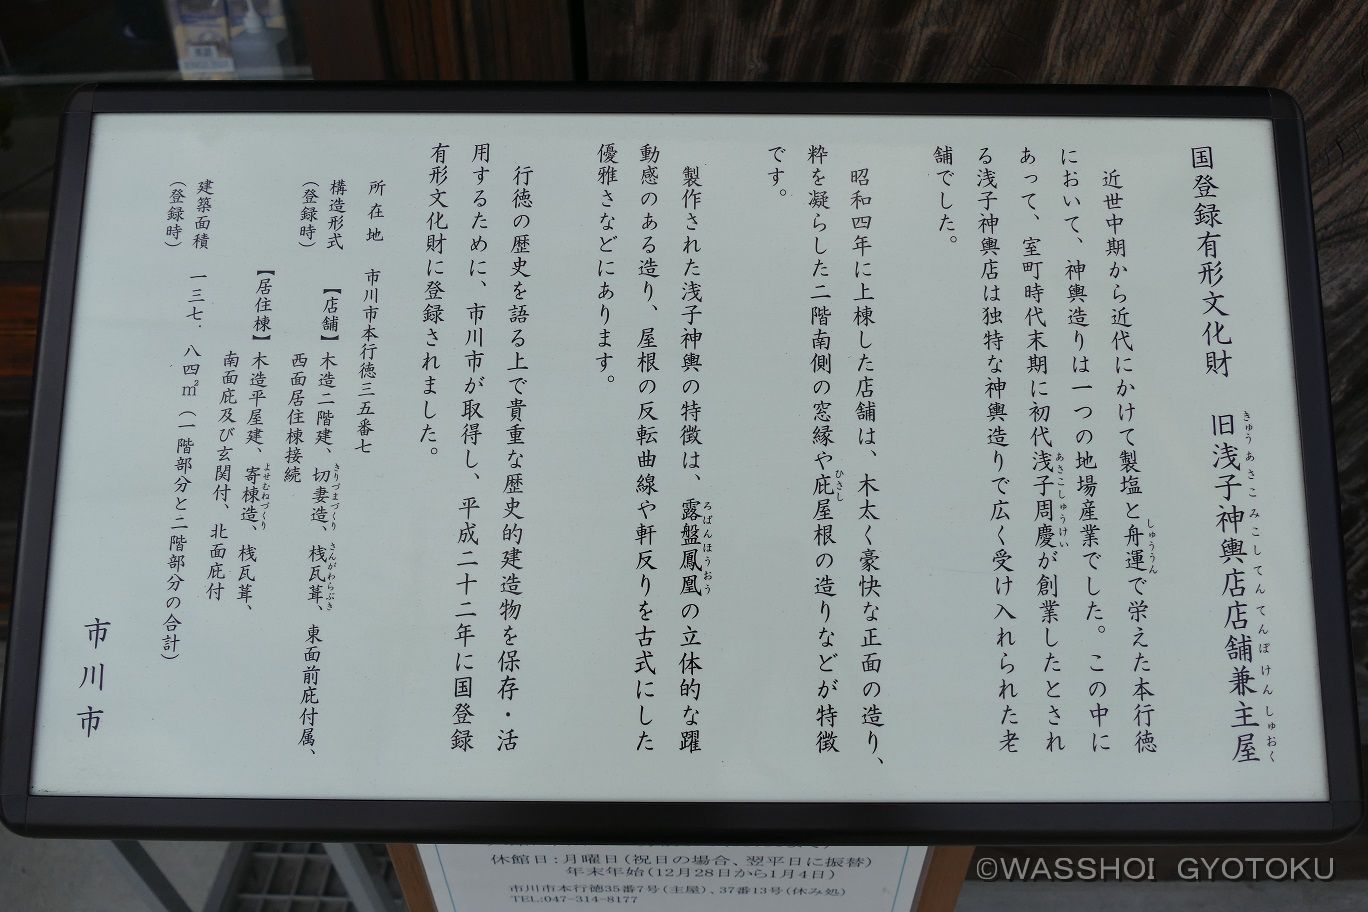 国登録有形文化財　旧浅子神輿店店舗兼主屋
きゅうあさこみこしてんてんぽけんしゅおく
近世中期から近代にかけて製塩と舟運で栄えた本行徳
しゅううん
において、神輿造りは一つの地場産業でした。この中に
あって、室町時代末期に初代浅子周慶が創業したとされ
あさこしゅうけい
る浅子神輿店は独特な神輿造りで広く受け入れられた老
舗でした。
昭和四年に上棟した店舗は、木太く豪快な正面の造り、
粋を凝らした二階南側の窓縁や庇屋根の造りなどが特徴
ひさし
です。
製作された浅子神輿の特徴は、露盤鳳凰の立体的な躍
ろばんほうおう
動感のある造り、屋根の反転曲線や軒反りを古式にした
優雅さなどにあります。
行徳の歴史を語る上で貴重な歴史的建造物を保存・活
用するために、市川市が取得し、平成二十二年に国登録
有形文化財に登録されました。
所在地　市川市本行徳三五番七
構造形式　【店舗】木造二階建、切妻造、桟瓦葺、東面前庇付属、
きりづまづくり　さんがわらぶき
（登録時）　西面居住棟接続
【居住棟】木造平屋建、寄棟造、桟瓦葺、
よせむねづくり
南面庇及び玄関付、北面庇付
建築面積　一三七．八四㎡（一階部分と二階部分の合計）
（登録時）
市川市
休館日：月曜日（祝日の場合、翌平日に振替）
年末年始（12月28日から1月4日）
市川市本行徳35番7号（主屋）、37番13号（休み処）
TEL:047-314-8177
©WASSHOI GYOTOKU